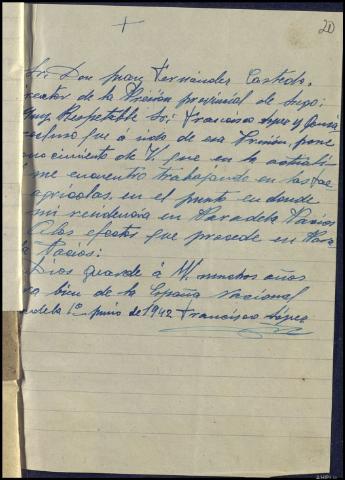 20
+
Sr. Don Juan Fernández Castedo,
rector de la Prisión provincial de Lugo:
muy Respetable Sr: Francisco López y García
recluso que á sido de esa Prisión, pone
nocimiento de V. que en la actuali
me encuentro trabajando en las fae
agrícolas, en el punto en donde
mi residencia en Paradela
A los efectos que procede en Para
Dios guarde á V. muchos años
ra bien de la España Nacional
adela 1º Junio de 1942 Francisco López